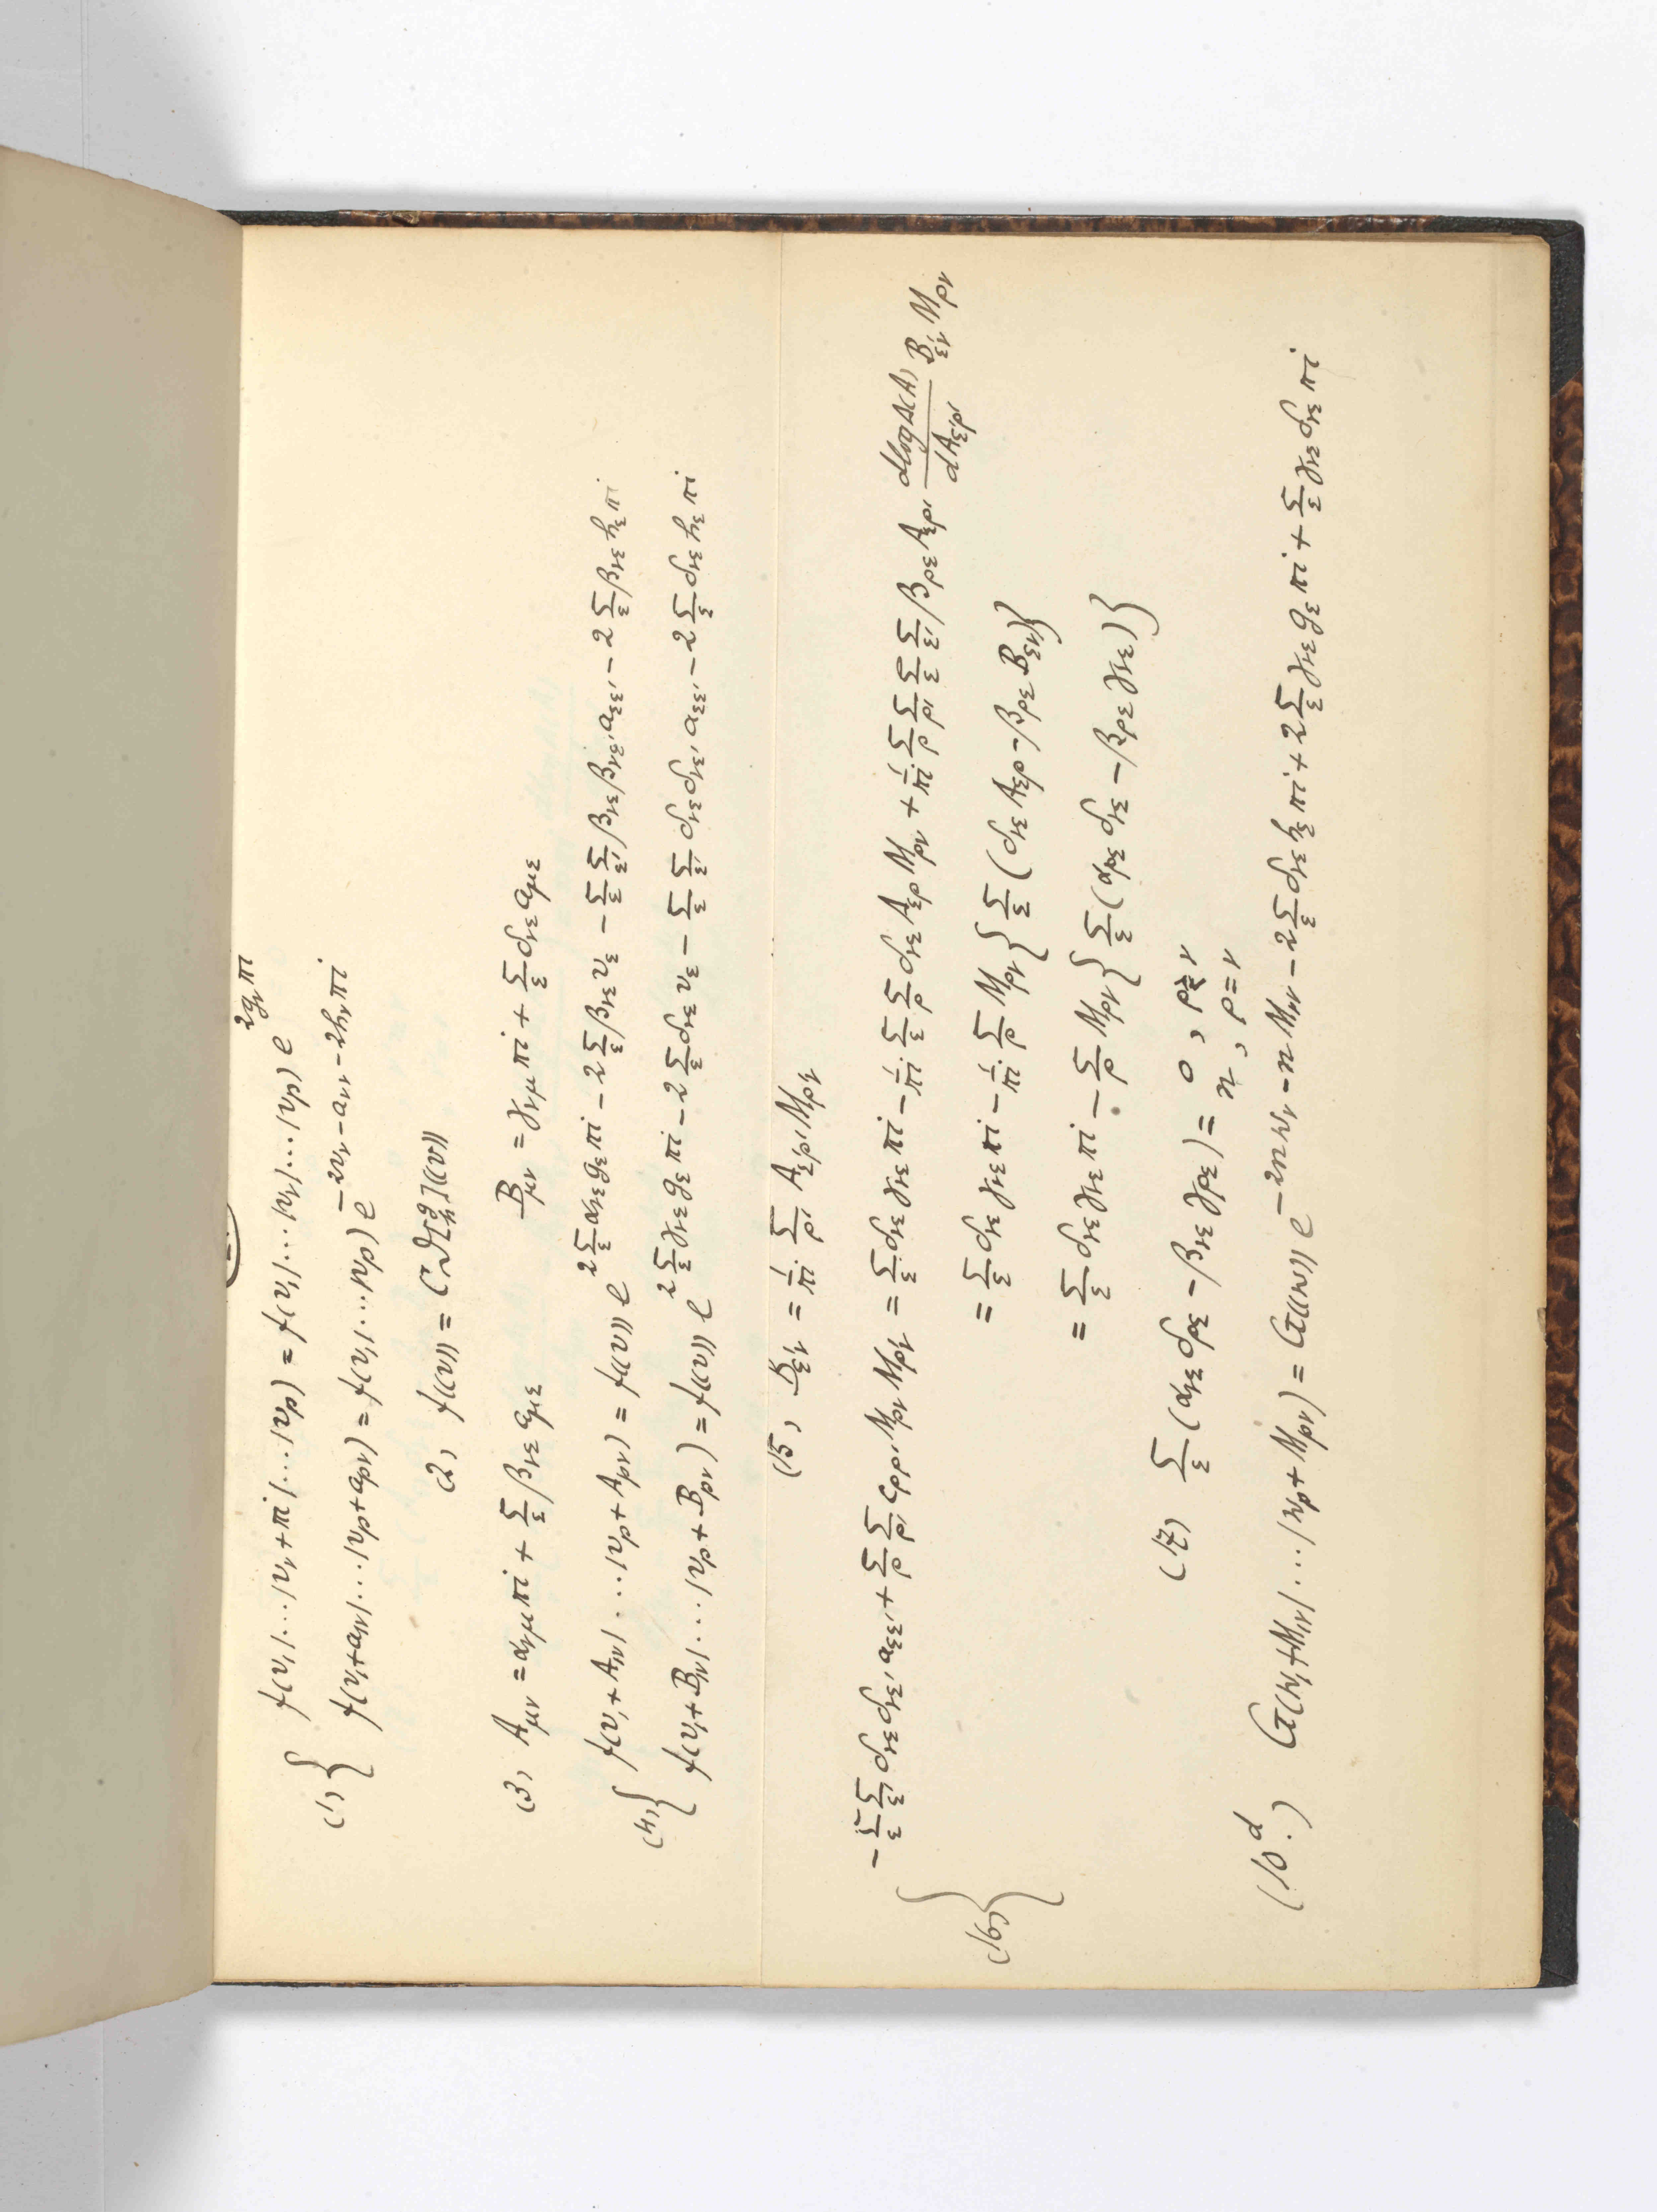 (1.) { f(v₁|...|v_ν+πi|...|v_p) = f(v₁|...|v_ν|...|v_p) e^{2g_νπi}
f(v₁+a_{1ν}|...|v_p+a_{pν}) = f(v₁|...|v_p) e^{-2v_ν-a_{νν}-2h_νπi}
(2.) f((v)) = Cϑ[^g_h]((v))
(3.) A_{μν} = α_{νμ}πi + Σ_ε β_{νε}a_{με} B_{μν} = γ_{νμ}πi + Σ_ε δ_{νε}a_{με}
(4.) { f(v₁+A_{1ν}|...|v_p+A_{pν}) = f((v)) e^{2Σ_ε α_{νε}g_επi - 2Σ_ε β_{νε}v_ε - Σ_ε Σ_ε' β_{νε}β_{νε'}a_{εε'} - 2Σ_ε β_{νε}h_επi}
f(v₁+B_{1ν}|...|v_p+B_{pν}) = f((v)) e^{2Σ_ε γ_{νε}g_επi - 2Σ_ε δ_{νε}v_ε - Σ_ε Σ_ε' δ_{νε}δ_{νε'}a_{εε'} - 2Σ_ε δ_{νε}h_επi}
(15.) B_{ε'ν} = 1/πi Σ_ρ' A_{ε'ρ'}M_{ρ'ν}
(16.) { -Σ_ε Σ_ε' δ_{νε}δ_{νε'}a_{εε'} + Σ_ρ Σ_ρ' c_{ρρ'}M_{ρν}M_{ρ'ν} = Σ_ε δ_{νε}γ_{νε}πi - 1/πi Σ_ε Σ_ρ δ_{νε}A_{ερ}M_{ρν} + 1/πi Σ_ρ Σ_ρ' Σ_ε Σ_ε' β_{ρε}A_{ερ'} dlogΔ(A)/dA_{ε'ρ'} B_{ε'ν}M_{ρν}
= Σ_ε δ_{νε}γ_{νε}πi - 1/πi Σ_ρ M_{ρν}{Σ_ε (δ_{νε}A_{ερ} - β_{ρε}B_{εν})}
= Σ_ε δ_{νε}γ_{νε}πi - Σ_ρ M_{ρν}{Σ_ε (α_{ρε}δ_{νε} - β_{ρε}γ_{νε})}
(17) Σ_ε (α_{νε}δ_{ρε} - β_{νε}γ_{ρε}) = 0, ρ≷ν
n, ρ=ν
(10.^d) G(w₁+M_{1ν}|...|w_p+M_{pν}) = G((w)) e^{-2nw_ν - nM_{νν} - 2Σ_ε δ_{νε}h_επi + 2Σ_ε γ_{νε}g_επi + Σ_ε γ_{νε}δ_{νε}πi}